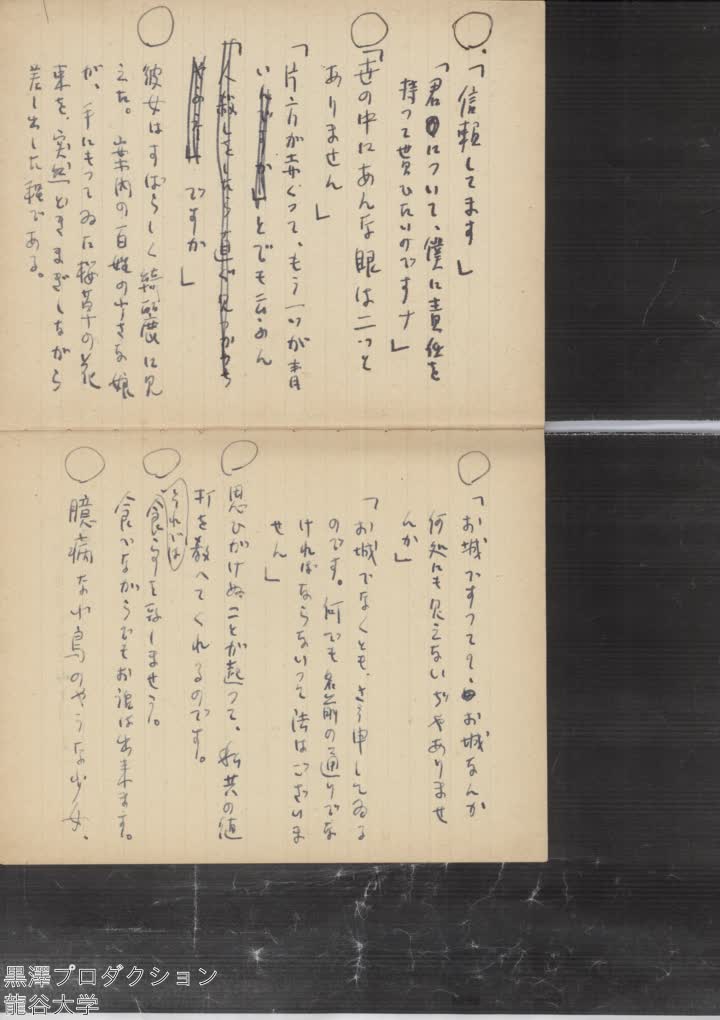 ○「信頼してます」
「君について、僕に責任を
持つて貰ひたいのですナ」
○「世の中にあんな眼は二つと
ありません」
「片方が赤くつて、もう一つが青
いんですか」とでも云ふん
「人殺しをしたら直ぐ見つかつち
ですか」
○彼女はすばらしく綺麗に見
えた。案内の百姓の小さな娘
が、手にもつてゐた桜草の花
束を、突然どぎまぎしながら
差し出した程である。
○「お城ですつて？お城なんか
何処にも見えないぢやありませ
んか」
「お城でなくとも、さう申してゐる
のです。何でも名前の通りでな
ければならないつて法はございま
せん」
○思ひがけぬことが起つて、私共の値
打を教へてくれるのです。
○それでは
食事を致しませう。
食べながらでもお話は出来ます。
○臆病な小鳥のやうな少女、
黒澤プロダクション
龍谷大学